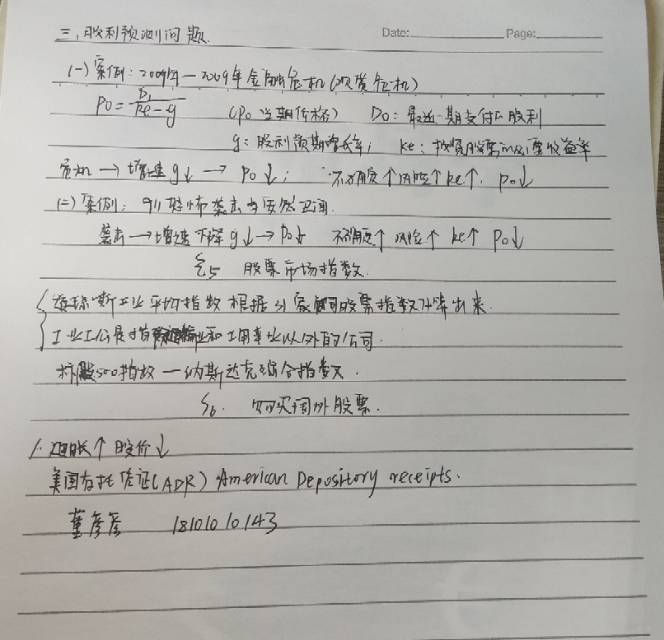 Date: Page:
三、股利预测问题
(一)案例:2007年—2009年金融危机(次贷危机)
P0=D1/(ke-g) (P0当期价格) D0:最近一期支付的股利
g:股利预期增长率; ke:投资股票的必要收益率
危机→增速g↓→P0↓; 不确定↑风险↑ke↑. P0↓
(二)案例:911恐怖袭击与安然丑闻
袭击→增速下降g↓→P0↓ 不确定↑ 风险↑ ke↑ P0↓
§5 股票市场指数
道琼斯工业平均指数根据 家 股票指数计算出来.
工业公司是指 和公用事业以外的公司.
标准500指数—纳斯达克综合指数
§6. 购买国外股票.
1. ↑ 股价↓
美国存托凭证(ADR) American Depository receipts.
董彦 18101010143